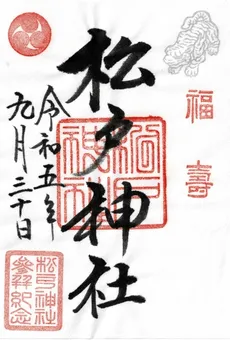 福壽
松戸神社
松戸神社
令和五年
九月三十日
松戸神社
參拜紀念